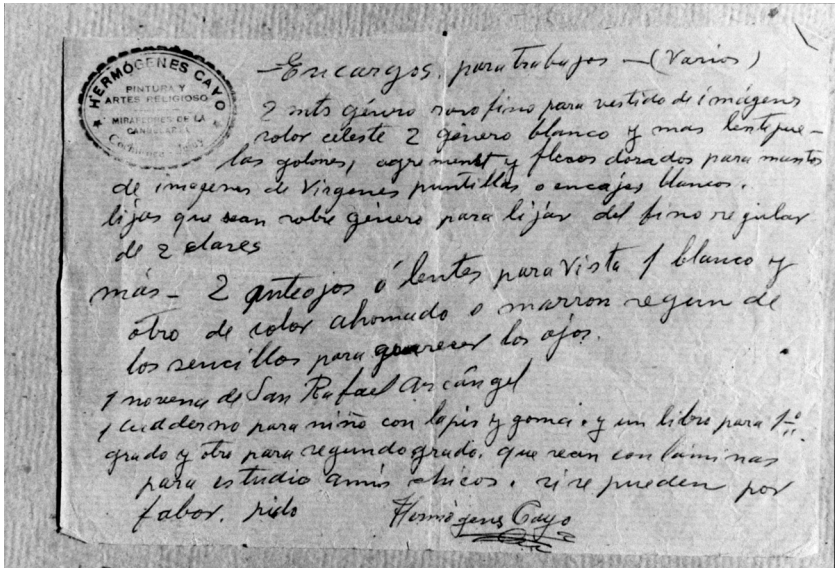 HERMÓGENES CAYO
PINTURA Y
ARTES RELIGIOSO
MIRAFLORES DE LA
CANDELARIA
- Encargos, para trabajos - (Varios)
2 mts género raso fino para vestido de imágens
color celeste 2 género blanco y mas lentejue-
las galones, agrement y flecos dorados para mantos
de imagenes de Virgenes puntillas o encajes blancos.
lijas que sean sobre género para lijar del fino regular
de 2 clares
más - 2 anteojos ó lentes para vista 1 blanco y
otro de color ahomado o marron segun de
los sencillos para guarecer los ojos.
1 novena de San Rafael Arcángel
1 cuadderno para niño con lapis y goma. y un libro para 1º
grado y otro para segundo grado. que sean con láminas
para estudio a mis chicos. si se pueden por
fabor. pido Hermógenes Cayo